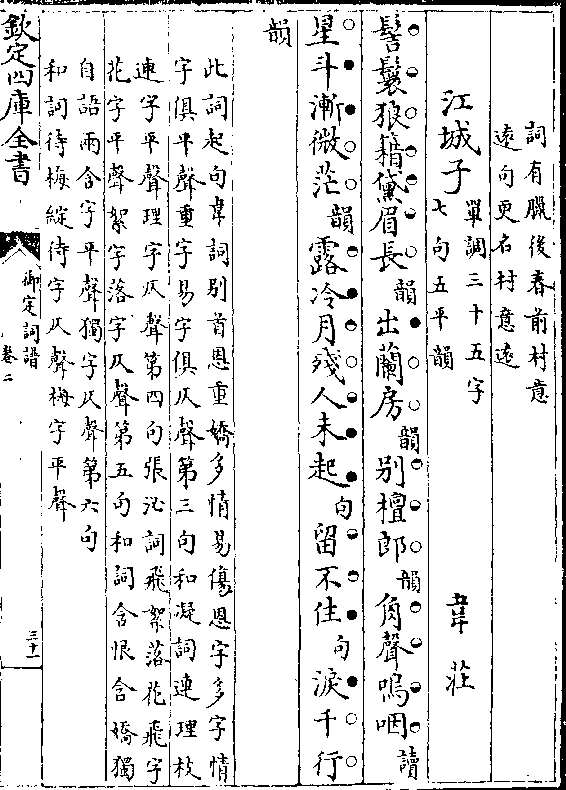 詞有臘後春前村意
遠句更名村意遠
江城子 單調三十五字
七句五平韻 韋莊
髻鬟狼籍黛眉長韻出蘭房韻别檀郎韻角聲嗚咽讀
星斗漸微茫韻露冷月殘人未起句留不住句淚千行
韻
此詞起句韋詞别首恩重嬌多情易傷恩字多字情
字俱平聲重字易字俱仄聲第三句和凝詞連理枝
連字平聲理字仄聲第四句張泌詞飛絮落花飛字
花字平聲絮字落字仄聲第五句和詞含恨含嬌獨
自語兩含字平聲獨字仄聲第六句
和詞待梅綻待字仄聲梅字平聲
欽定四庫全書
御定詞譜
卷二
三十一